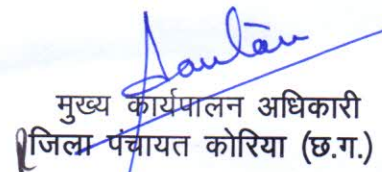 मुख्य कार्यपालन अधिकारी
जिला पंचायत कोरिया (छ.ग.)